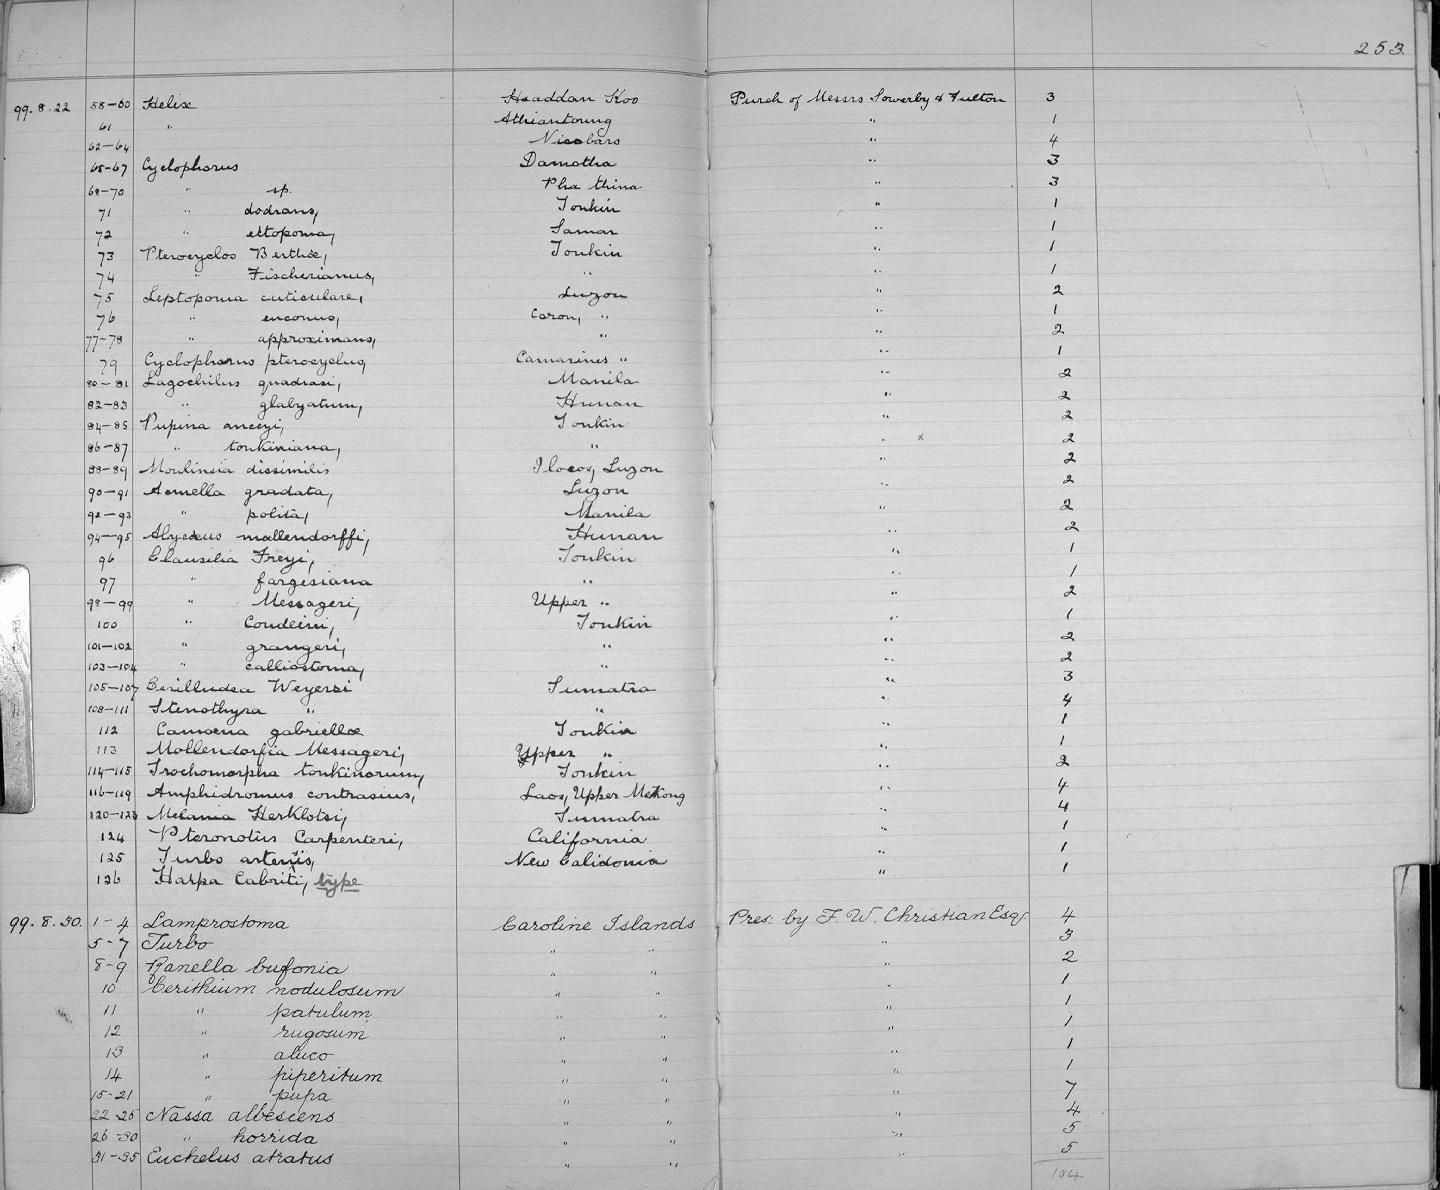 253.
99.8.22 58-60 Helix Haaddan Koo Purch of Messrs Sowerby & Fulton 3
61 " Athiantoung " 1
62-64 Nicobars " 4
65-67 Cyclophorus Damotha " 3
68-70 " sp. Pha thina " 3
71 " dodrans, Tonkin " 1
72 " ektopoma, Samar " 1
73 Pterocyclos Berthæ, Tonkin " 1
74 " Fischerianus, " " 1
75 Leptopoma cuticulare, Luzon " 2
76 " euconus, Coron, " " 1
77-78 " approximans, " " 2
79 Cyclophorus pterocyclus, Camarines " " 1
80-81 Lagochilus quadrasi, Manila " 2
82-83 " glabyatum, Hunan " 2
84-85 Pupina anceyi, Tonkin " 2
86-87 " tonkiniana, " " x 2
88-89 Moulinsia dissimilis Ilocos, Luzon " 2
90-91 Acmella gradata, Luzon " 2
92-93 " polita, Manila " 2
94-95 Alycæus mollendorffi, Hunan " 2
96 Clausilia Freyi, Tonkin " 1
97 " fargesiana " " 1
98-99 " Messageri, Upper " " 2
100 " Coudeini, Tonkin " 1
101-102 " grangeri, " " 2
103-104 " calliostoma, " " 2
105-107 Weyersi Sumatra " 3
108-111 Stenothyra " " " 4
112 Camoena gabriellæ Tonkin " 1
113 Mollendorfia Messageri, Upper " " 1
114-115 Trochomorpha tonkinorum, Tonkin " 2
116-119 Amphidromus contrasius, Laos, Upper Mekong " 4
120-123 Melania Herklotsi, Sumatra " 4
124 Pteronotus Carpenteri, California " 1
125 Turbo artensis, New Calidonia " 1
126 Harpa Cabriti, type " 1
99.8.30. 1-4 Lamprostoma Caroline Islands Pres. by F. W. Christian Esq. 4
5-7 Turbo " " " 3
8-9 Ranella bufonia " " " 2
10 Cerithium nodulosum " " " 1
11 " patulum " " " 1
12 " rugosum " " " 1
13 " aluco " " " 1
14 " piperitum " " " 1
15-21 " pupa " " " 7
22-25 Nassa albescens " " " 4
26-30 " horrida " " " 5
31-35 Euchelus atratus " " " 5
104